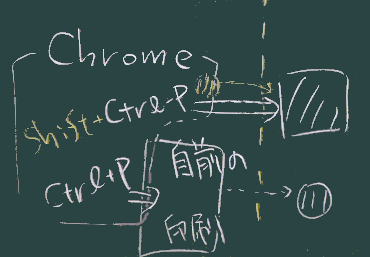 Chrome
Shift+Ctrl-P
Ctrl+P
自前の
印刷